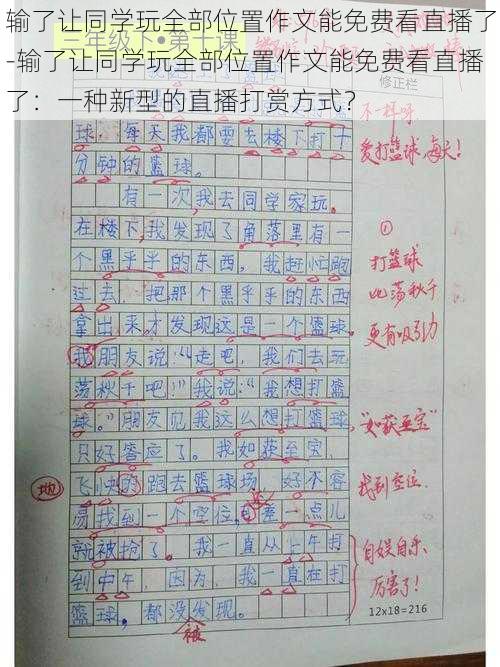 输了让同学玩全部位置作文能免费看直播了
-输了让同学玩全部位置作文能免费看直播
了：一种新型的直播打赏方式？
三年级下·第十课
修正栏
不一样呀
球，每天我都要去楼下打十
爱打篮球，每天！
分钟的篮球。
有一次，我去同学家玩。
在楼下，我发现了角落里有一
①
个黑乎乎的东西，我赶忙跑
打篮球
过去，把那个黑乎乎的东西
比荡秋千
拿出来才发现这是一个篮球。
更有吸引力
我朋友说：“走吧，我们去玩
荡秋千吧！”我说：“我想打篮
球。”朋友见我这么想打篮球，
“如获至宝”
只好答应了。我如获至宝，
地
飞快的跑去篮球场，好不容
找到空位.
易找到一个空位，差一点儿
就被抢了。我一直从上午打
自娱自乐、
到中午，因为，我一直在打
厉害了！
篮球，都没发现。
被
12x18=216